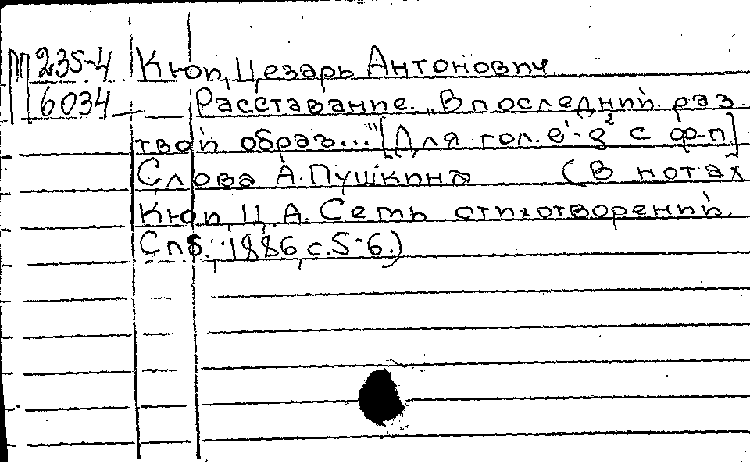 М 235-4
6034
Кюи, Цезарь Антонович
Расставание. „В последний раз
твой образ..." [Для гол. e¹-g² с ф-п]
Слова А. Пушкина (В нотах
Кюи, Ц. А. Семь стихотворений
Спб., 1886, с. 5-6.)